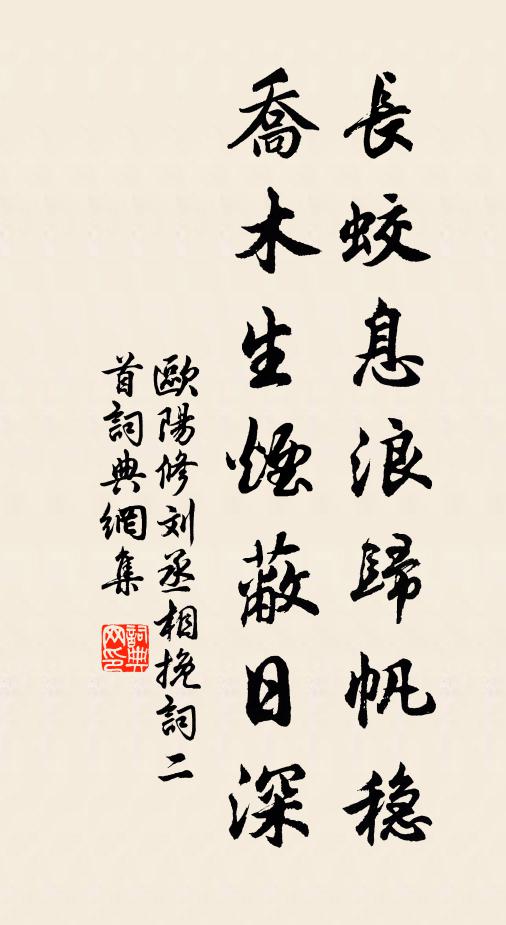 長蛟息浪歸帆穩
喬木生煙蔽日深
歐陽修刘丞相挽詞二
首詞典網集
詞典
网印